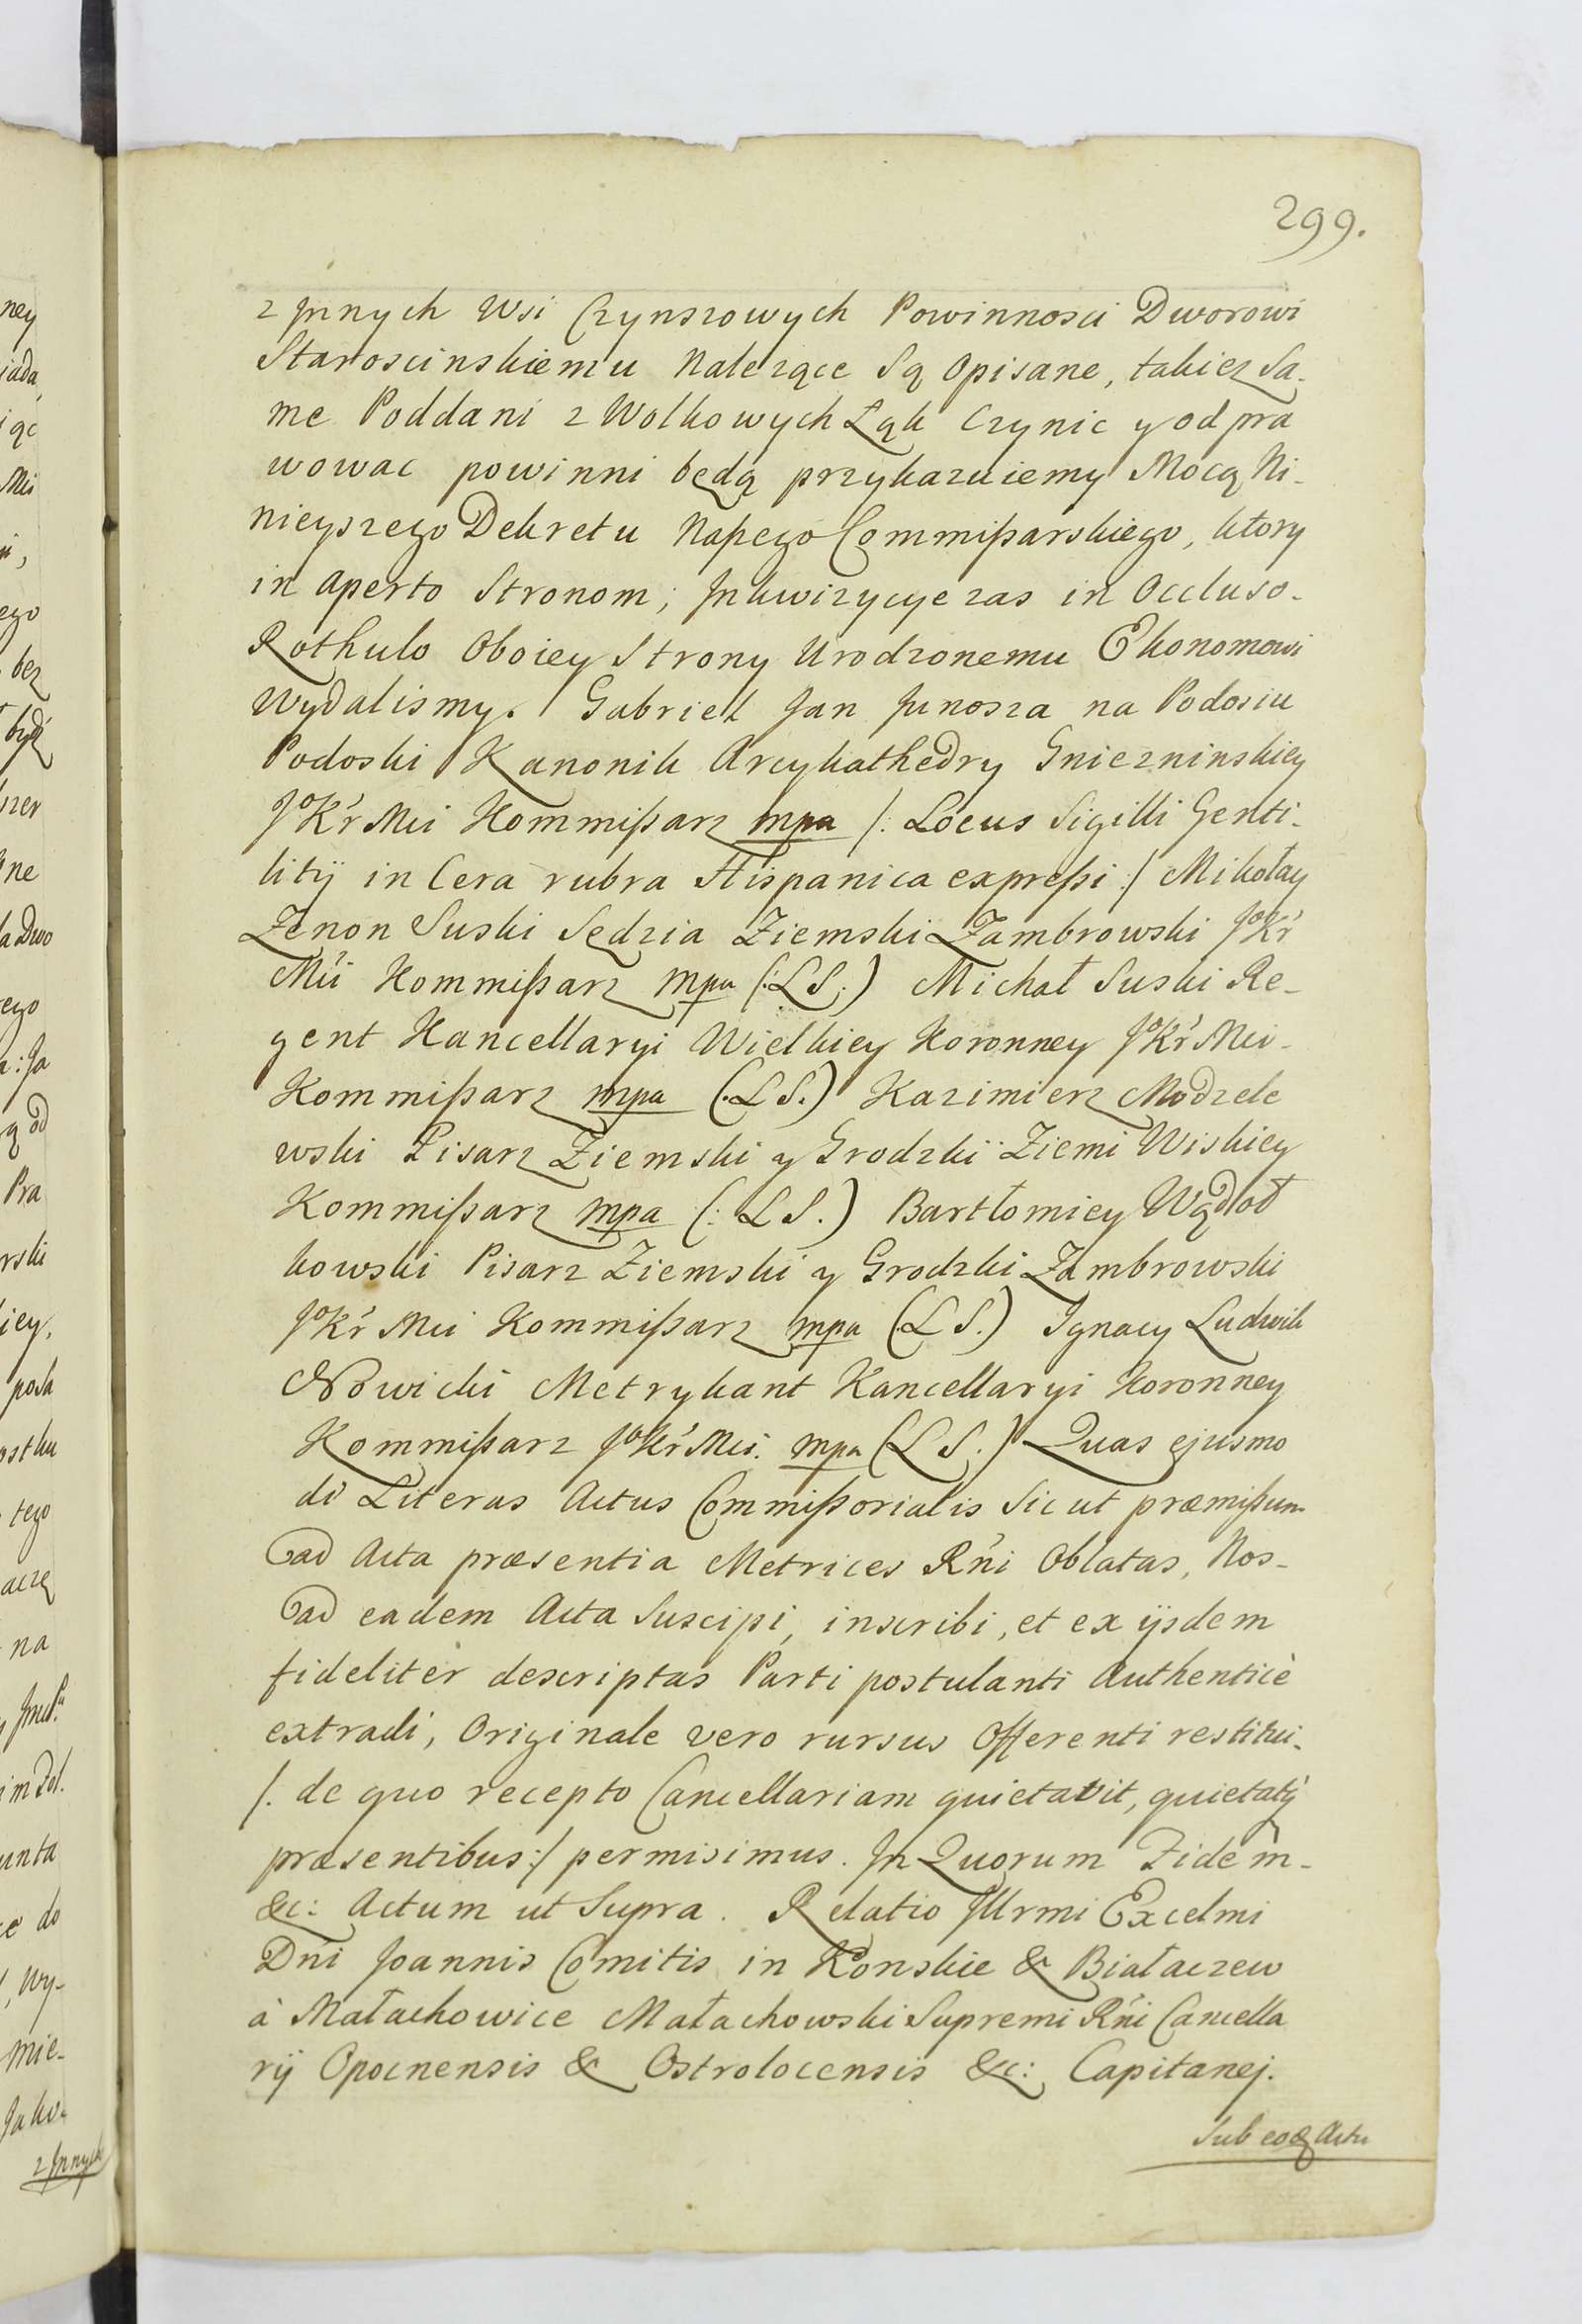 299.
z Jnnych Wsi Czynszowych Powinnosci Dworowi
Staroscinskiemu Nalezące Są Opisane, takiez Sa-
me Poddani z Wolkowych Łąk Czynic y odpra
wowac powinni będą przykazuiemy Mocą Ni-
nieyszego Dekretu Naßego Commißarskiego, ktory
in aperto Stronom; Jnkwizycye zas in Occluso-
Rothulo Oboiey Strony Urodzonemu Ekonomowi
Wydalismy. Gabriel Jan Junosza na Podosiu
Podoski Kanonik Arcykathedry Gnieznienskiey
JoKr Mci Kommißarz mpa /: Locus Sigilli Genti-
litij in Cera rubra Hispanica expreßi :/ Mikołay
Zenon Suski Sędzia Ziemski Zambrowski JoKr
Mci Kommißarz mpa (:LS:) Michał Suski Re-
gent Kancellaryi Wielkiey Koronney JoKr Mci-
Kommißarz mpa (:LS.) Kazimierz Modzele
wski Pisarz Ziemski y Grodzki Ziemi Wiskiey
Kommißarz mpa (: LS.) Bartłomiey Wądoł
kowski Pisarz Ziemski y Grodzki Zambrowski
JoKr Mci Kommißarz mpa (:LS.) Ignacy Ludwik
Nowicki Metrykant Kancellaryi Koronney
Kommißarz JoKr Mci. mpa (LS.) Quas ejusmo
di Literas Actus Commißorialis Sicut præmißum
ad Acta præsentia Metrices Rni Oblatas, Nos-
ad eadem Acta Suscipi, inscribi, et ex ijsdem
fideliter descriptas Parti postulanti Authenticè
extradi, Originale vero rursus Offerenti restitui-
/: de quo recepto Cancellariam quietavit, quietatq
præsentibus :/ permisimus. Jn Quorum Fidem-
&c: Actum ut Supra. Relatio Jllrmi Excelmi
Dni Joannis Comitis in Konskie & Białaczew
à Małachowice Małachowski Supremi Rni Cancella
rij Opocnensis & Ostrolocensis &c: Capitanej.
Sub eodq Actu
z Jnnych